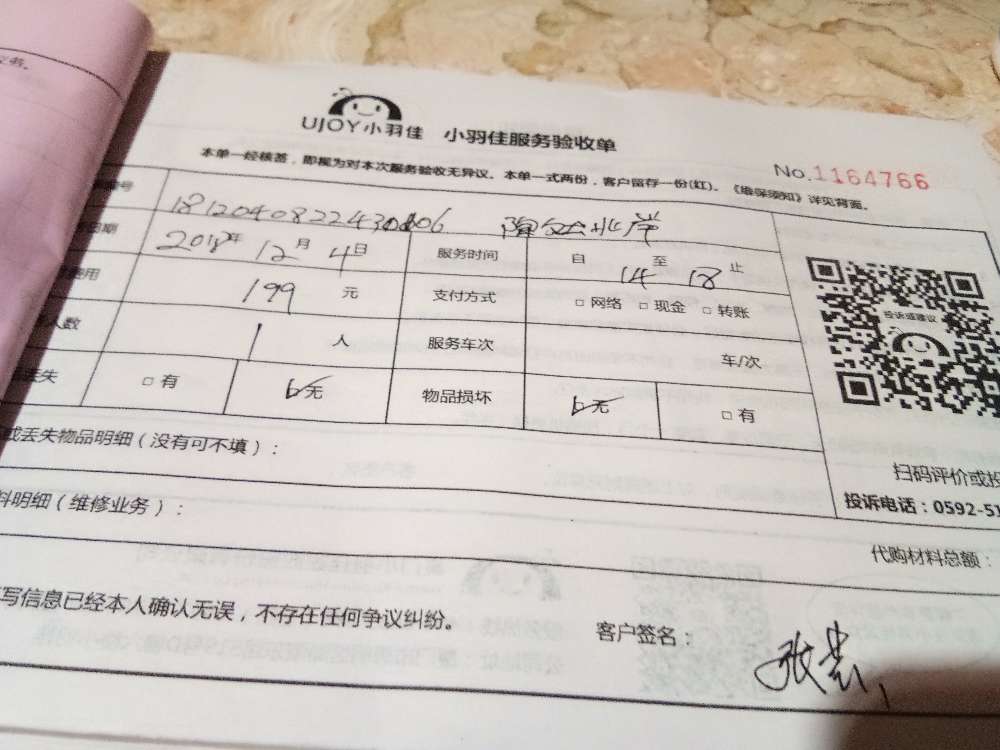 UJOY小羽佳 小羽佳服务验收单
No.1164766
本单一经核签，即视为对本次服务验收无异议。本单一式两份，客户留存一份(红)。《维保须知》详见背面。
编号
日期 2018年 12月 4日 服务时间 自 14 至 18 止
费用 199 元 支付方式 □ 网络 □ 现金 □ 转账
人数 1 人 服务车次 车/次
丢失 □ 有 无 物品损坏 无 □ 有
投诉或建议
或丢失物品明细（没有可不填）：
扫码评价或投
料明细（维修业务）：
投诉电话：0592-51
代购材料总额：
写信息已经本人确认无误，不存在任何争议纠纷。
客户签名：